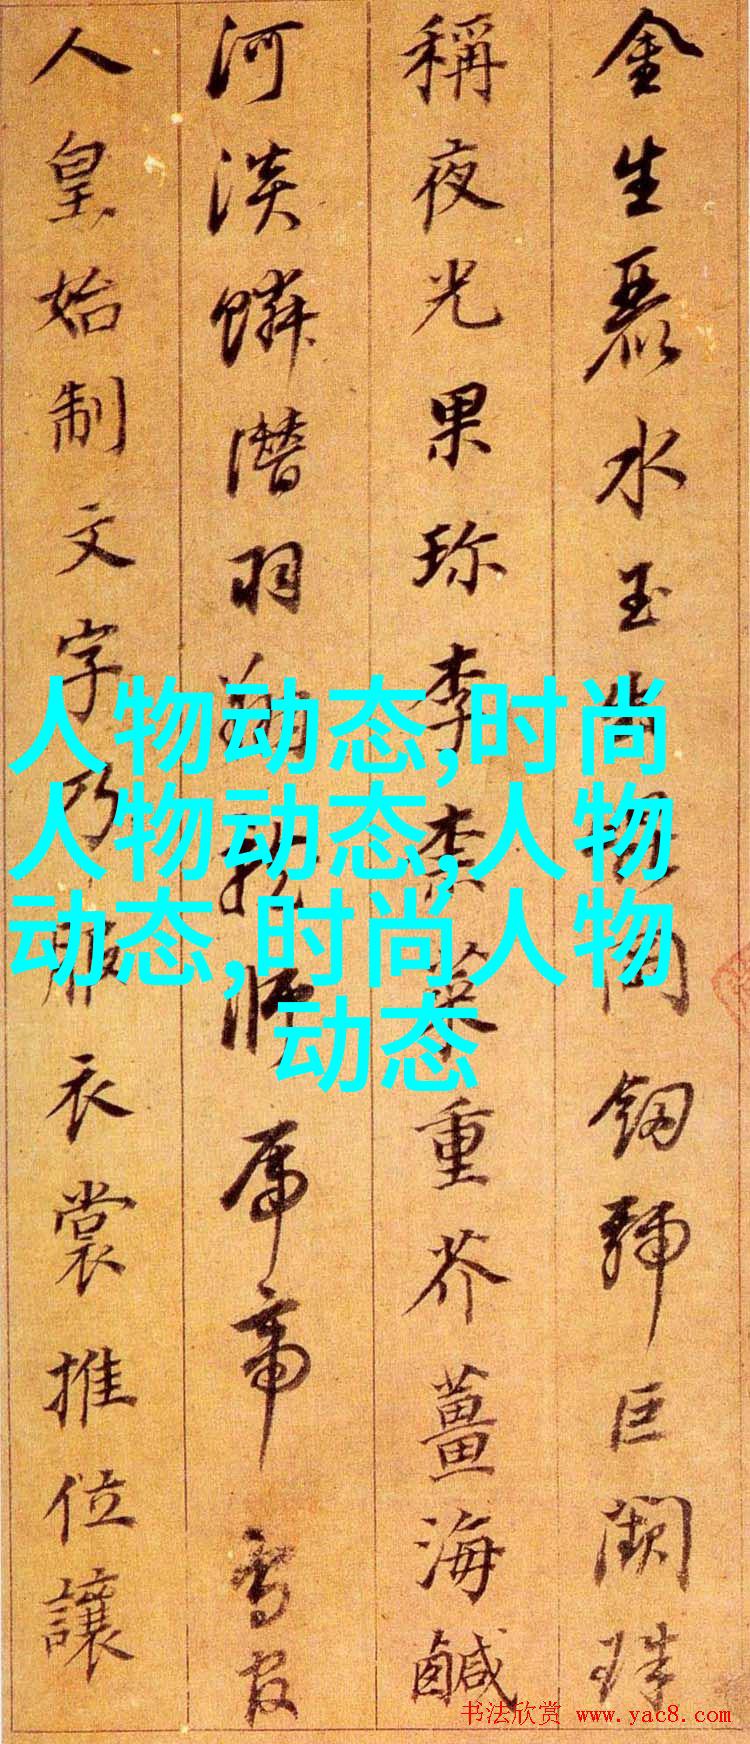 金生麗水玉出崑岡釰號巨闕珠
稱夜光果珍李柰菜重芥薑海鹹
河淡鱗潛羽翔龍師帝鳥官
人皇始制文字乃服衣裳推位讓
人物动态,时尚
人物动态,人物
动态,时尚人物
动态
书法欣赏 www.yac8.com